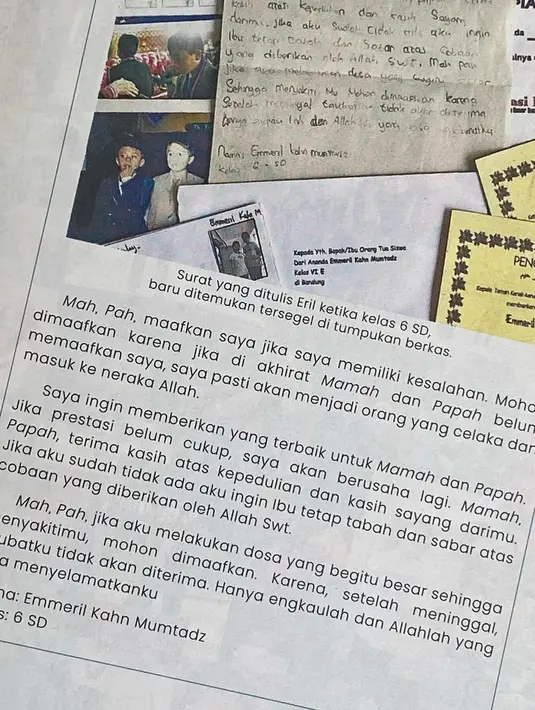 atas kepedulian dan kasih sayang
darimu. Jika aku sudah tidak ada aku ingin
Ibu tetap tabah dan sabar atas cobaan
yang diberikan oleh Allah SWT. Mah pah
Jika aku melakukan dosa yang begitu besar
Sehingga menyakiti Mu Mohon dimaafkan karena
Setelah meninggal tidak akan diterima
Nama: Emmeril kahn mumtadz
kelas: 6 - SD
Emmeril Kahn M
Kepada Yth. Bapak/Ibu Orang Tua Siswa
Dari Ananda Emmeril Kahn Mumtadz
Kelas VI E
di Bandung
PEN
Emmeril
Surat yang ditulis Eril ketika kelas 6 SD,
baru ditemukan tersegel di tumpukan berkas.
Mah, Pah, maafkan saya jika saya memiliki kesalahan. Moho
dimaafkan karena jika di akhirat Mamah dan Papah belum
memaafkan saya, saya pasti akan menjadi orang yang celaka dan
masuk ke neraka Allah.
Saya ingin memberikan yang terbaik untuk Mamah dan Papah.
Jika prestasi belum cukup, saya akan berusaha lagi. Mamah,
Papah, terima kasih atas kepedulian dan kasih sayang darimu.
Jika aku sudah tidak ada aku ingin Ibu tetap tabah dan sabar atas
cobaan yang diberikan oleh Allah Swt.
Mah, Pah, jika aku melakukan dosa yang begitu besar sehingga
enyakitimu, mohon dimaafkan. Karena, setelah meninggal,
ubatku tidak akan diterima. Hanya engkaulah dan Allahlah yang
a menyelamatkanku
na: Emmeril Kahn Mumtadz
s: 6 SD